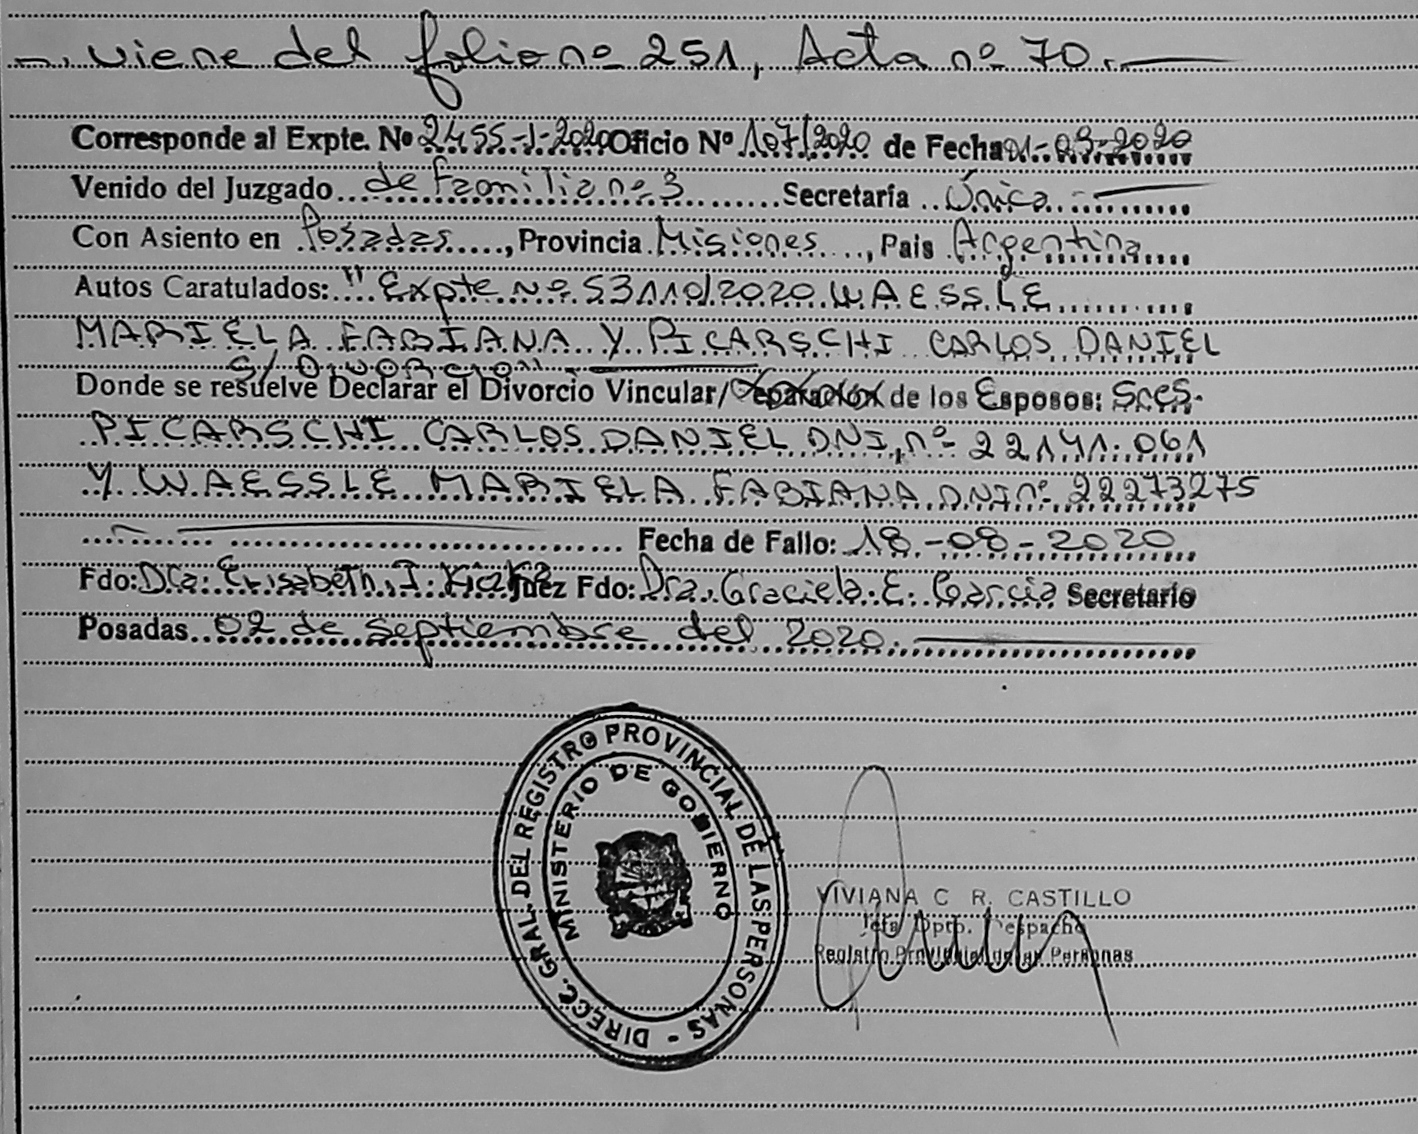 —, viene del folio nº 251, Acta nº 70.—
Corresponde al Expte. Nº 2455-J-2020 Oficio Nº 107/2020 de Fecha 01-09-2020
Venido del Juzgado de Familia nº 3 Secretaría Única.—
Con Asiento en Posadas, Provincia Misiones, Pais Argentina
Autos Caratulados: "Expte Nº 53110/2020 WAESSLE
MARIELA FABIANA Y PICARSCHI CARLOS DANIEL
S/ Divorcio"
Donde se resuelve Declarar el Divorcio Vincular/Separación de los Esposos: Sres.
PICARSCHI CARLOS DANIEL DNI, nº 22141.061
Y WAESSLE MARIELA FABIANA DNI nº 22273275
Fecha de Fallo: 18-08-2020
Fdo: Dra. I. Juez Fdo: Dra. Graciela E. Garcia Secretario
Posadas 02 de septiembre del 2020.
DIRECC. GRAL. DEL REGISTRO PROVINCIAL DE LAS PERSONAS -
MINISTERIO DE GOBIERNO
VIVIANA C R. CASTILLO
Jefa Dpto. Despacho
Registro Provincial de las Personas